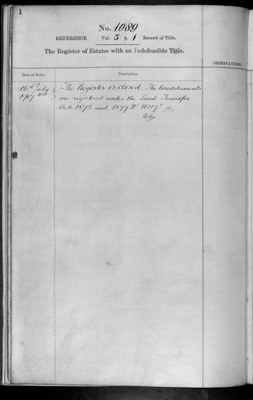 1
No. 1089
REFERENCE Vol. 5 p. 1 Record of Title.
The Register of Estates with an Indefeasible Title.
OBSERVATIONS.
Date of Entry. Description.
16th July The Register is closed. The hereditaments
1907 are registered under the Land Transfer
Acts 1875 and 1897 No